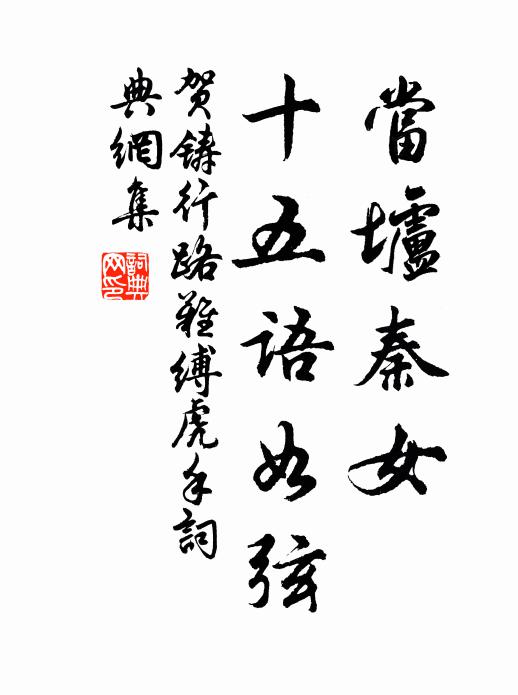 當壚秦女
十五語如弦
賀鑄行路難縛虎手詞
典網集
詞典网印